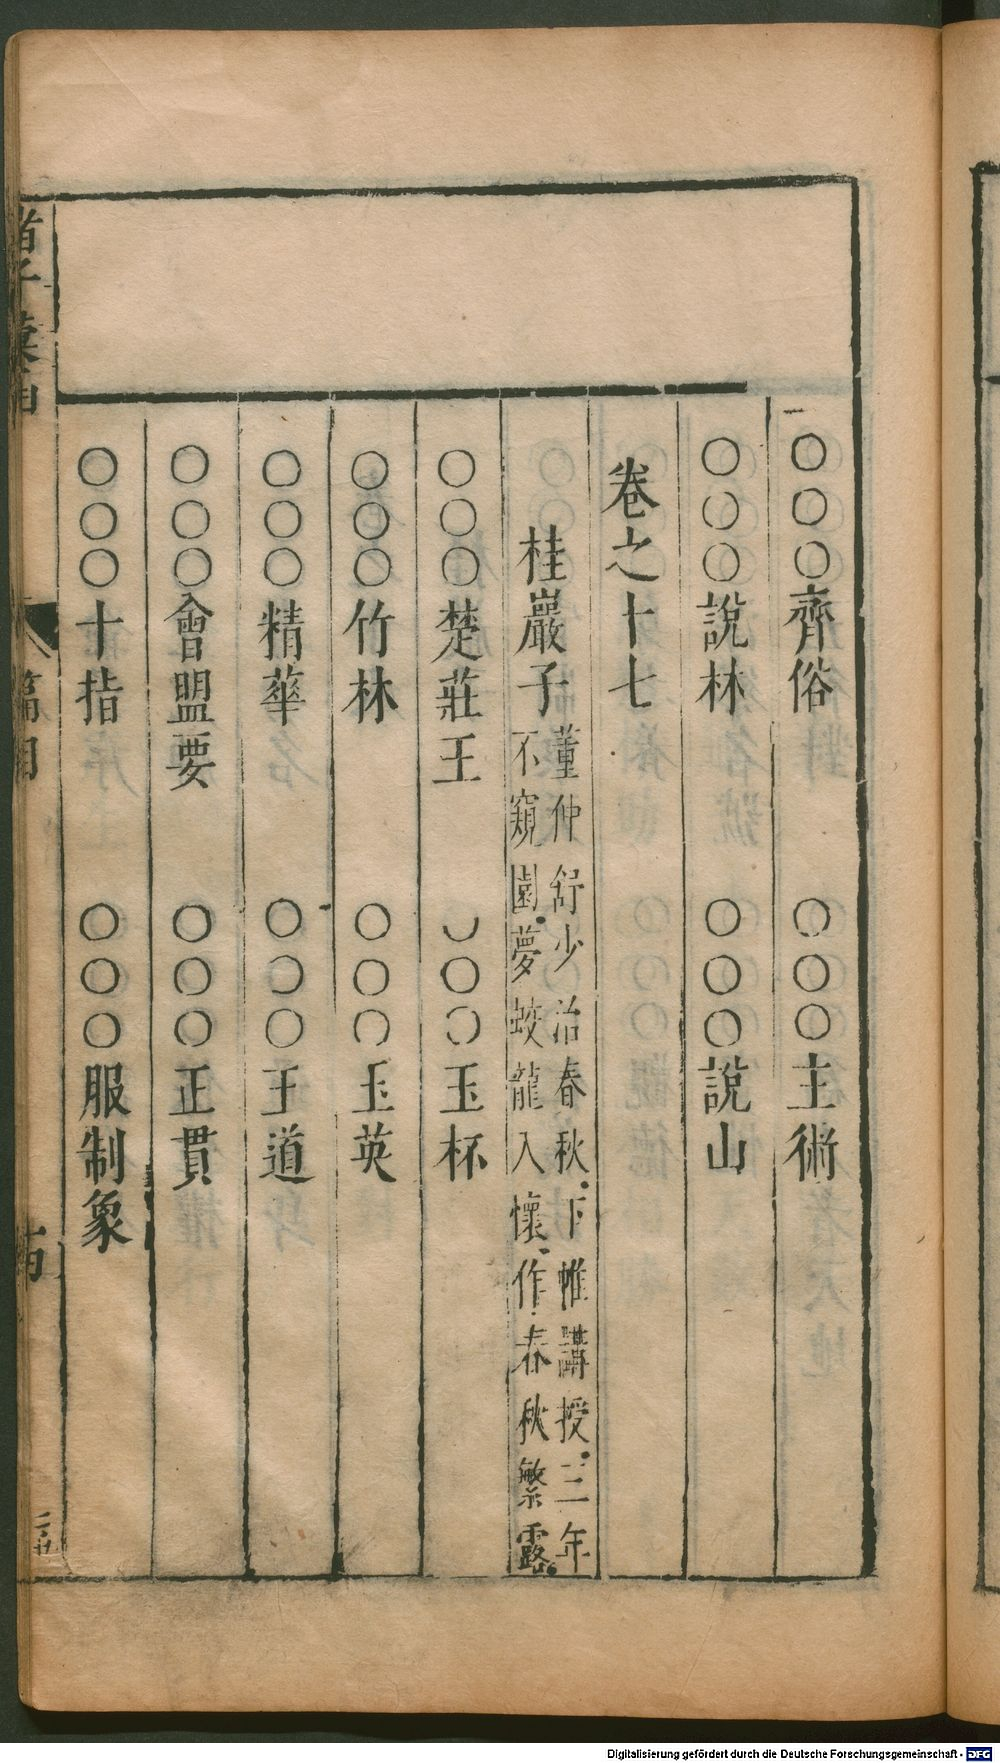 ○○○齊俗　○○○主術
○○○說林　○○○說山
卷之十七
桂巖子
董仲舒少治春秋．下帷講授．三年
不窺園．夢蛟龍入懷．作春秋繁露。
○○○楚莊王　○○○玉杯
○○○竹林　○○○玉英
○○○精華　○○○王道
○○○會盟要　○○○正貫
○○○十指　○○○服制象
篇目
Digitalisierung gefördert durch die Deutsche Forschungsgemeinschaft - DFG